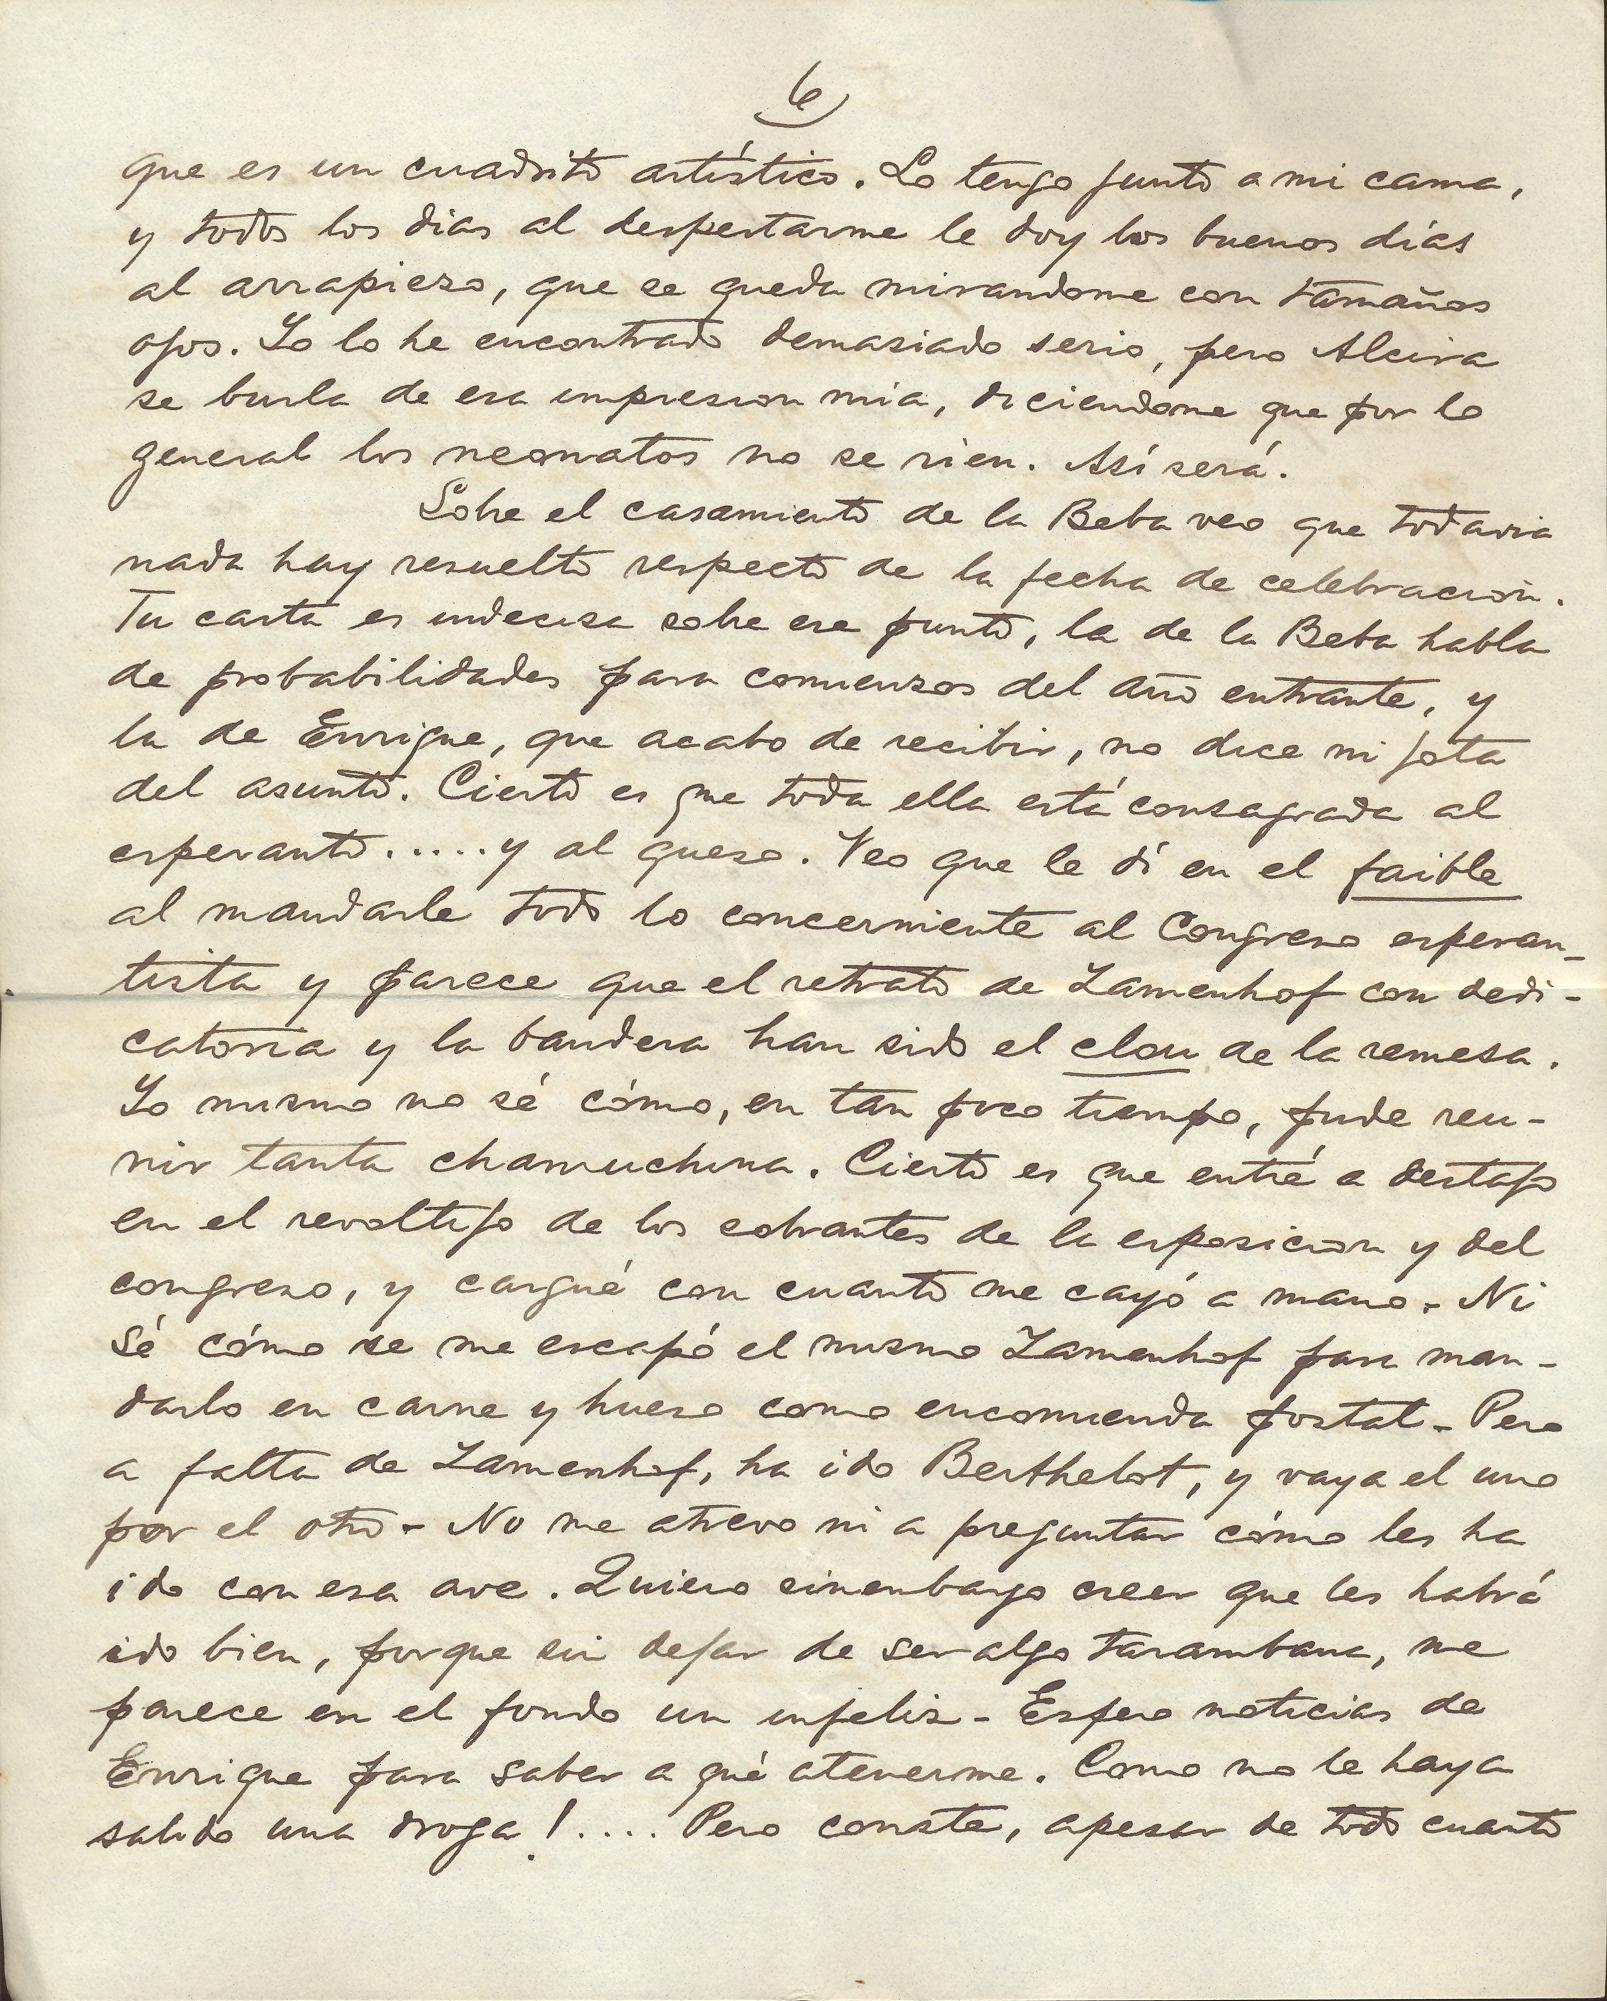 6
que es un cuadrito artístico. Lo tengo junto a mi cama,
y todos los dias al despertarme le doy los buenos días
al arrapiezo, que se queda mirandome con tamaños
ojos. Yo lo he encontrado demasiado serio, pero Alcira
se burla de esa impresion mia, diciendome que por lo
general los neonatos no se rien. Así será.
Sobre el casamiento de la Beba veo que todavia
nada hay resuelto respecto de la fecha de celebracion.
Tu carta es indecisa sobre ese punto, la de la Beba habla
de probabilidades para comienzos del año entrante, y
la de Enrique, que acabo de recibir, no dice ni jota
del asunto. Cierto es que toda ella está consagrada al
esperanto.....y al queso. Veo que le dí en el faible
al mandarle todo lo concerniente al Congreso esperan-
tista y parece que el retrato de Zamenhof con dedi-
catoria y la bandera han sido el clou de la remesa.
Yo mismo no sé cómo, en tan poco tiempo, pude reu-
nir tanta chamuchina. Cierto es que entré a destajo
en el revoltijo de los sobrantes de la esposicion y del
congreso, y cargué con cuanto me cayó a mano. Ni
sé cómo se me escapó el mismo Zamenhof para man-
darlo en carne y hueso como encomienda postal. Pero
a falta de Zamenhof, ha ido Berthelot, y vaya el uno
por el otro. No me atrevo ni a preguntar cómo les ha
ido con esa ave. Quiero sinembargo creer que les habrá
ido bien, porque sin dejar de ser algo tarambana, me
parece en el fondo un infeliz. Espero noticias de
Enrique para saber a qué atenerme. Como no le haya
salido una droga!.... Pero conste, apesar de todo cuanto